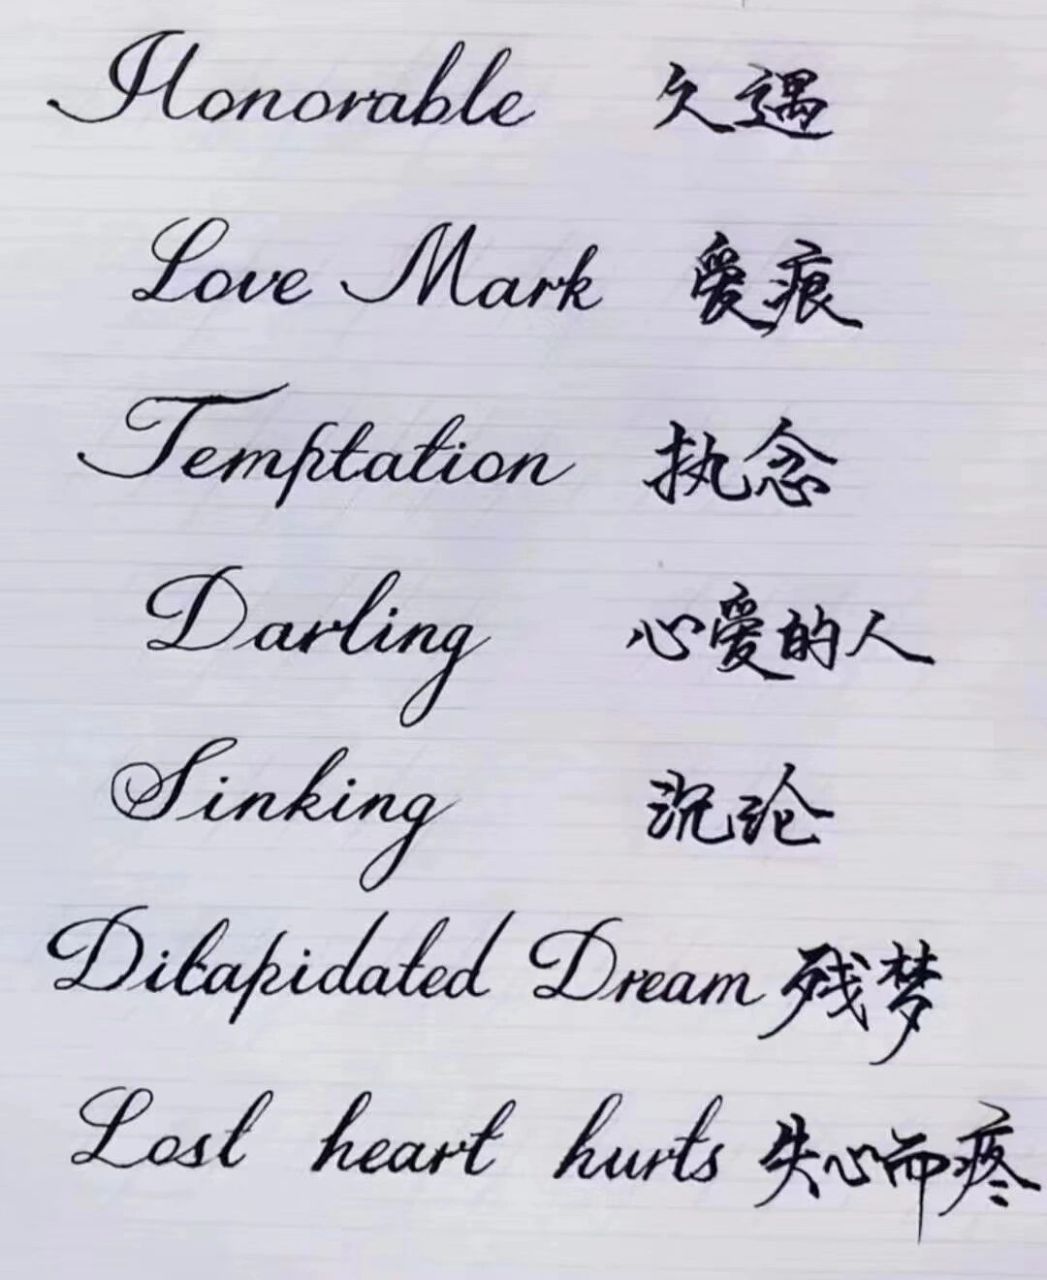 Honorable 久遇
Love Mark 爱痕
Temptation 执念
Darling 心爱的人
Sinking 沉论
Dilapidated Dream 残梦
Lost heart hurts 失心而疼